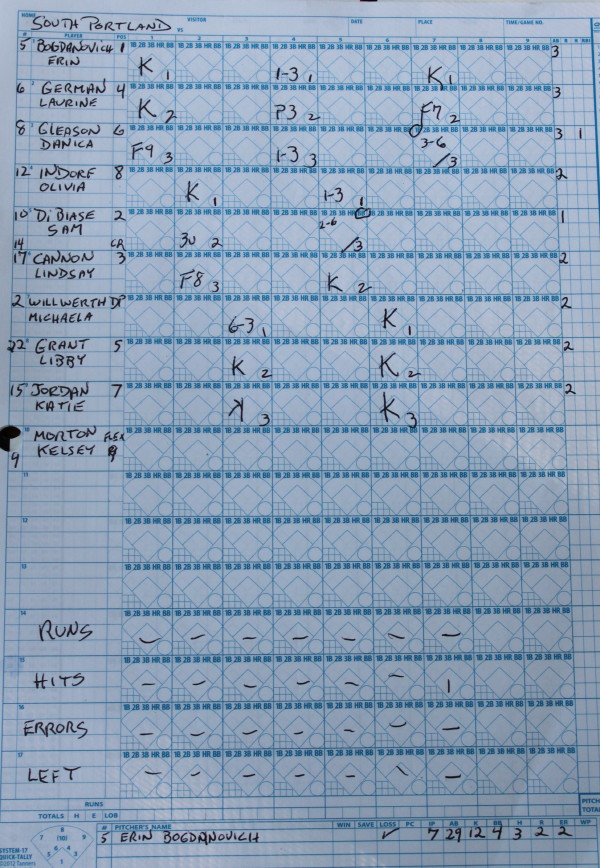 HOME SOUTH PORTLAND VISITOR VS DATE PLACE TIME/GAME NO.
# PLAYER POS 1 2 3 4 5 6 7 8 9 AB R H RBI
5 BOGDANOVICH 1 K 1 1-3 1 K 1 3
ERIN
6 GERMAN 4 K 2 P3 2 F7 2 3
LAURINE
8 GLEASON 6 F9 3 1-3 3 3-6 /3 3 1
DANICA
12 INDORF 8 K 1 1-3 1 2
OLIVIA
10 DiBIASE 2 3U 2 2-6 /3 1
SAM
14 CR
17 CANNON 3 F8 3 K 2 2
LINDSAY
2 WILLWERTH DP 6-3 1 K 1 2
MICHAELA
22 GRANT 5 K 2 K 2 2
LIBBY
15 JORDAN 7 K 3 K 3 2
KATIE
MORTON FLEX
9 KELSEY
11
12
13
14
RUNS - - - - - - -
15
HITS - - - - - - 1
16
ERRORS - - - - - - -
17
LEFT - - - - - - -
RUNS
TOTALS H E LOB
# PITCHER'S NAME WIN SAVE LOSS PC IP AB K BB H R ER WP
5 ERIN BOGDANOVICH ✓ 7 29 12 4 3 2 2
SYSTEM-17
QUICK-TALLY